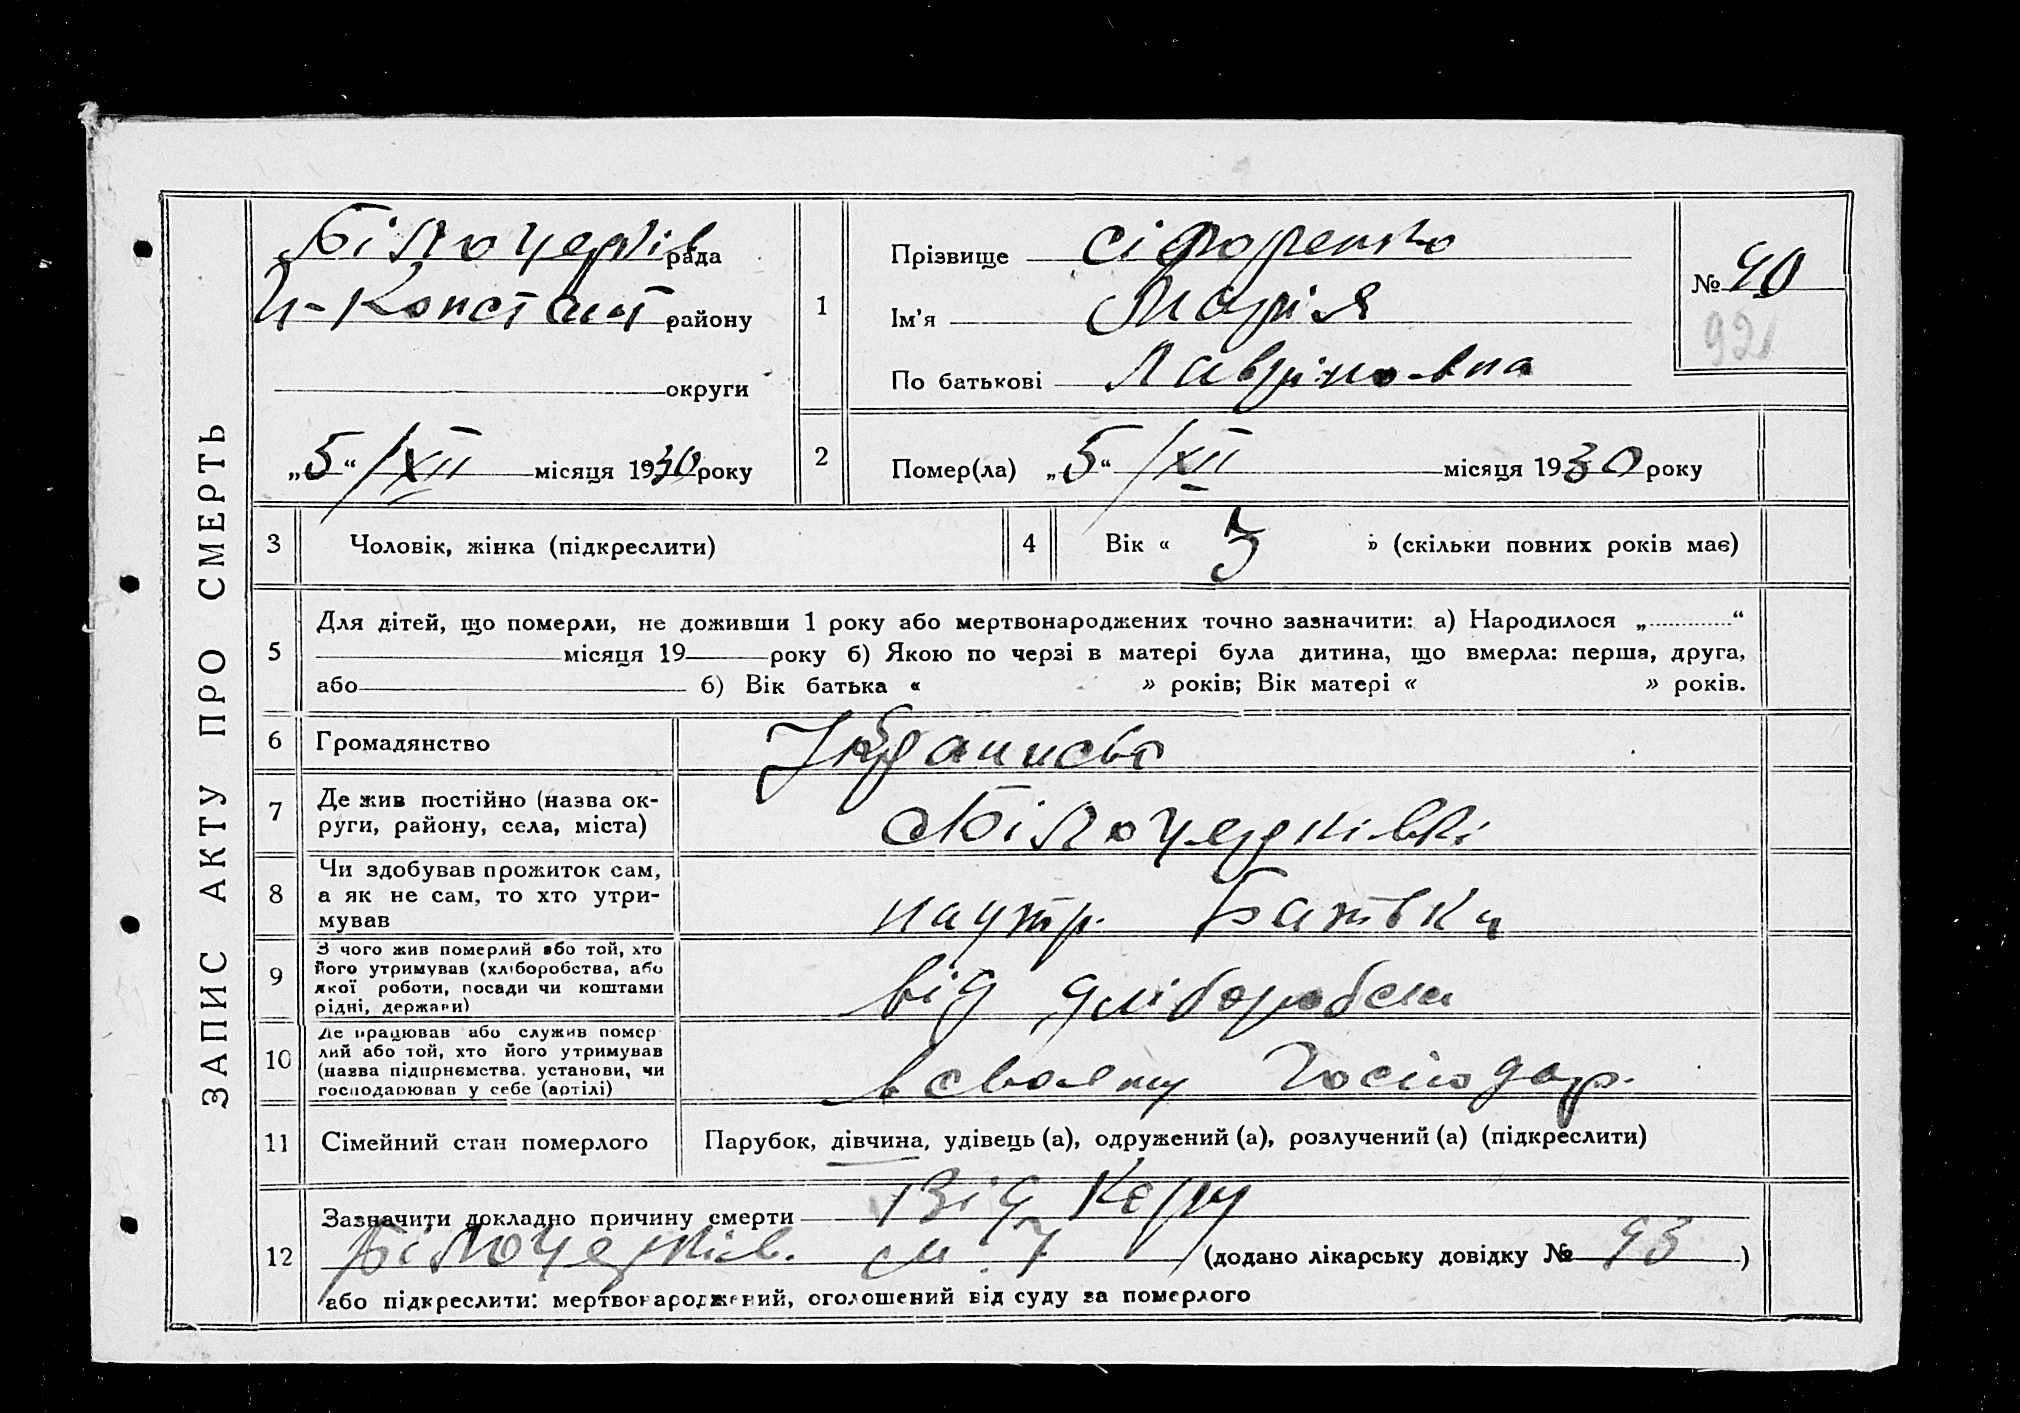 ЗАПИС АКТУ ПРО СМЕРТЬ
Білоцерків рада
Н-Констант району
округи
„5“ /XII місяця 1930 року
1
Прізвище Сідоренко
Ім'я Марія
По батькові Лавріновна
№ 40
92
2
Помер(ла) „5“ /XII місяця 1930 року
3 Чоловік, жінка (підкреслити)
4 Вік « 3 » (скільки повних років має)
5 Для дітей, що померли, не доживши 1 року або мертвонароджених точно зазначити: а) Народилося „............“
місяця 19 року б) Якою по черзі в матері була дитина, що вмерла: перша, друга,
або б) Вік батька « » років; Вік матері « » років.
6 Громадянство Украинсько
7 Де жив постійно (назва ок-
руги, району, села, міста) Білоцерківкі
8 Чи здобував прожиток сам,
а як не сам, то хто утри-
мував наутр. Батька
9 З чого жив померлий або той, хто
його утримував (хліборобства, або
якої роботи, посади чи коштами
рідні, держави) від хліборобства
10 Де працював або служив помер
лий або той, хто його утримував
(назва підприємства, установи, чи
господарював у себе (артілі) в своему Господар.
11 Сімейний стан померлого Парубок, дівчина, удівець (а), одружений (а), розлучений (а) (підкреслити)
12 Зазначити докладно причину смерти Від Керу
Білоцерків. (додано лікарську довідку № 43)
або підкреслити: мертвонароджений, оголошений від суду за померлого